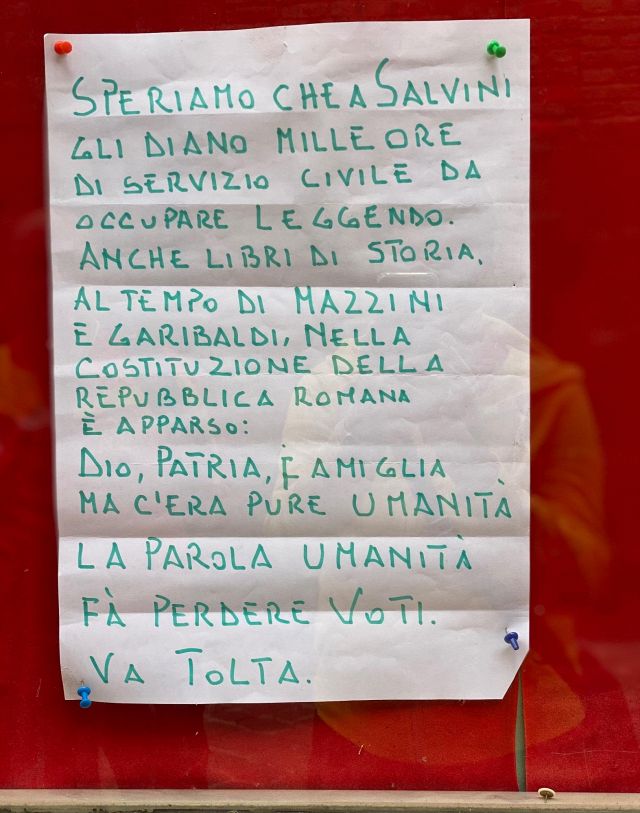 SPERIAMO CHE A SALVINI
GLI DIANO MILLE ORE
DI SERVIZIO CIVILE DA
OCCUPARE LEGGENDO.
ANCHE LIBRI DI STORIA.
AL TEMPO DI MAZZINI
E GARIBALDI, NELLA
COSTITUZIONE DELLA
REPUBBLICA ROMANA
È APPARSO:
DIO, PATRIA, FAMIGLIA
MA C'ERA PURE UMANITÀ
LA PAROLA UMANITÀ
FÀ PERDERE VOTI.
VA TOLTA.